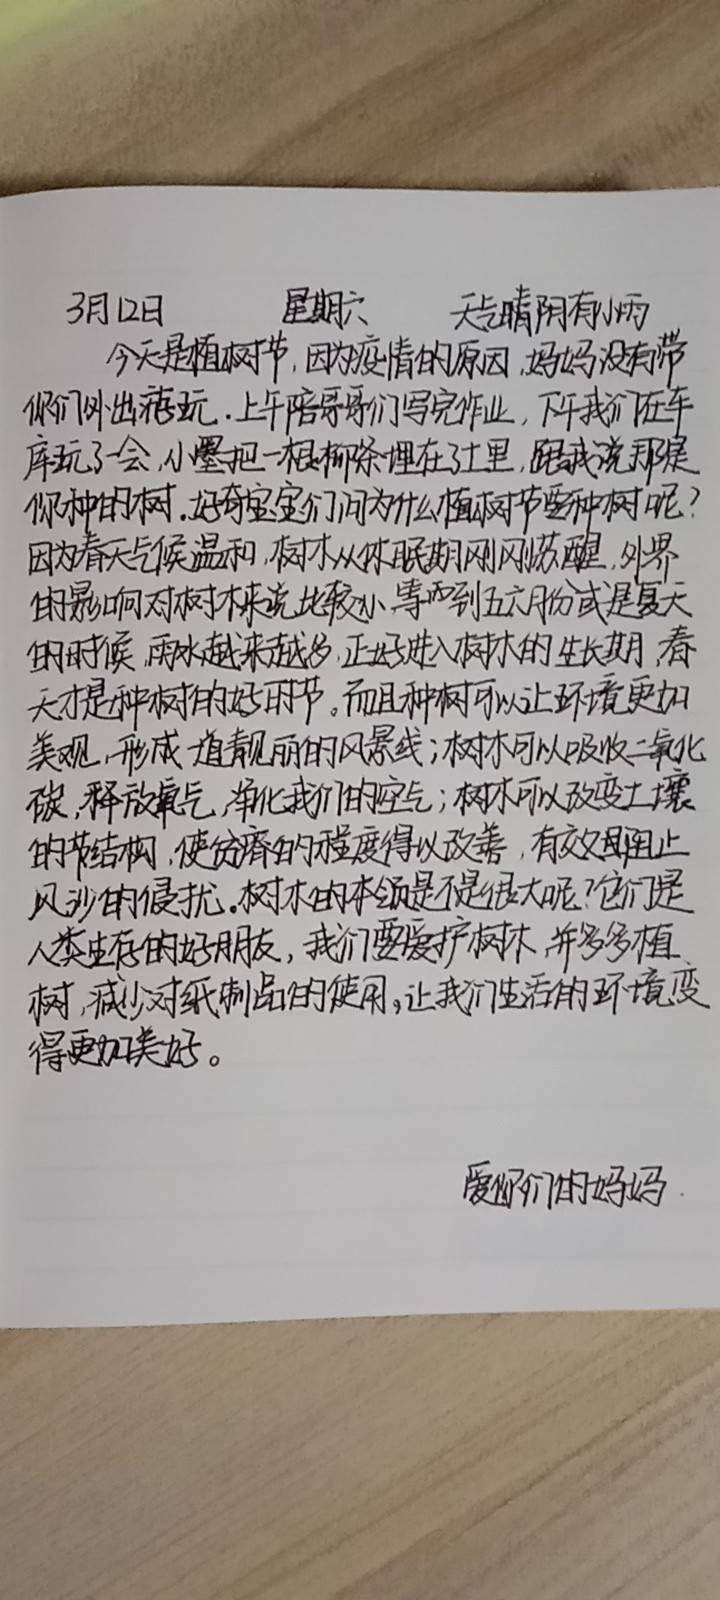 3月12日 星期六 天气晴阴有小雨
今天是植树节,因为疫情的原因,妈妈没有带
你们外出游玩.上午陪哥哥们写完作业,下午我们在车
库玩了一会,小墨把一根柳条埋在了土里,跟我说那是
你种的树.好奇宝宝们问为什么植树节要种树呢?
因为春天气候温和,树木从休眠期刚刚苏醒,外界
的影响对树木来说比较小,等而到五六月份或是夏天
的时候,雨水越来越多,正好进入树木的生长期,春
天才是种树的好时节。而且种树可以让环境更加
美观,形成一道靓丽的风景线;树木可以吸收二氧化
碳,释放氧气,净化我们的空气;树木可以改变土壤
的节结构,使贫瘠的程度得以改善,有效阻止
风沙的侵扰.树木的本领是不是很大呢?它们是
人类生存的好朋友,我们要爱护树木,并多多植
树,减少对纸制品的使用,让我们生活的环境变
得更加美好。
爱你们的妈妈